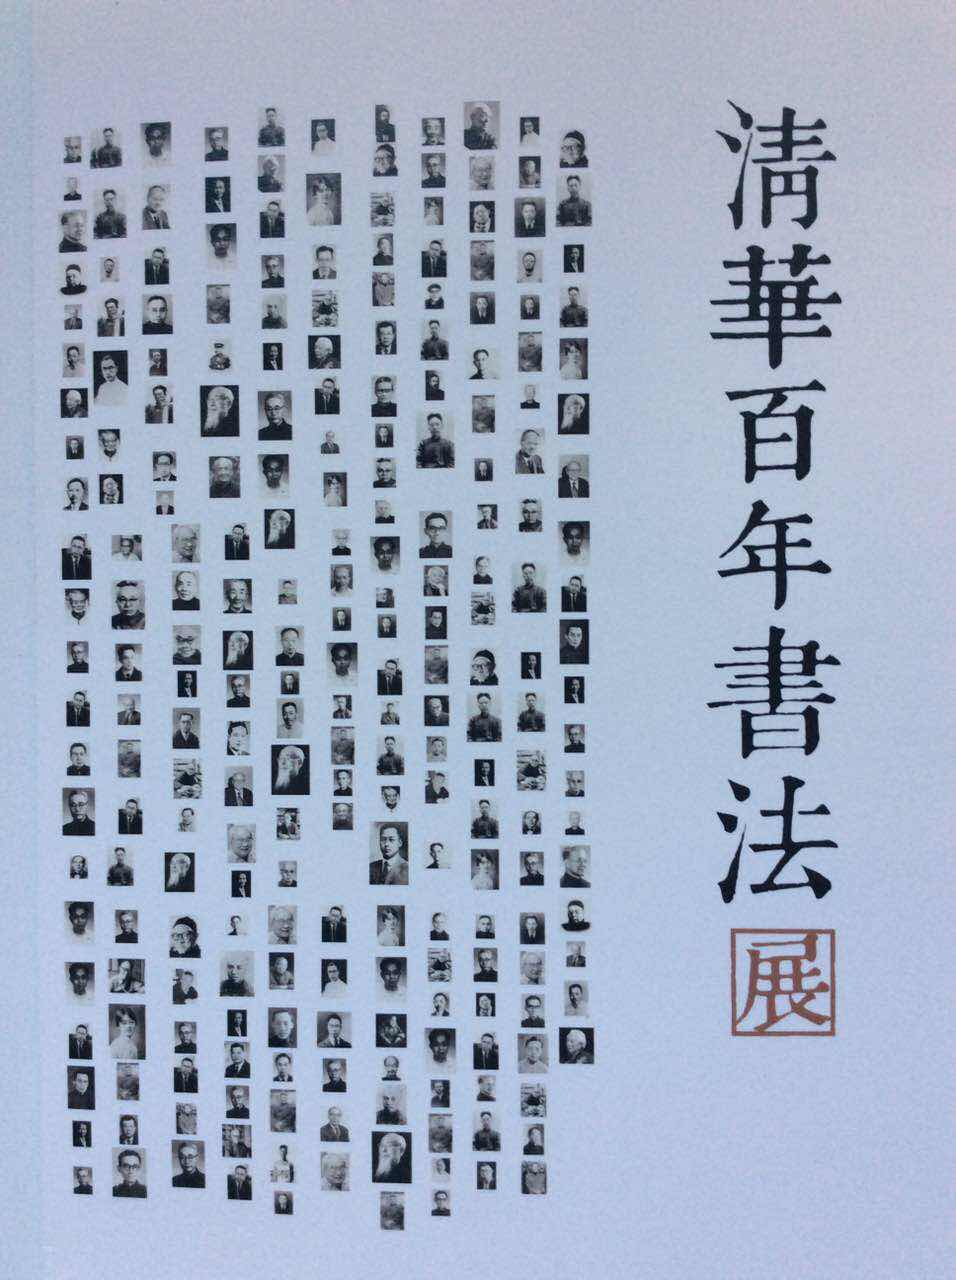 清華百年書法
展